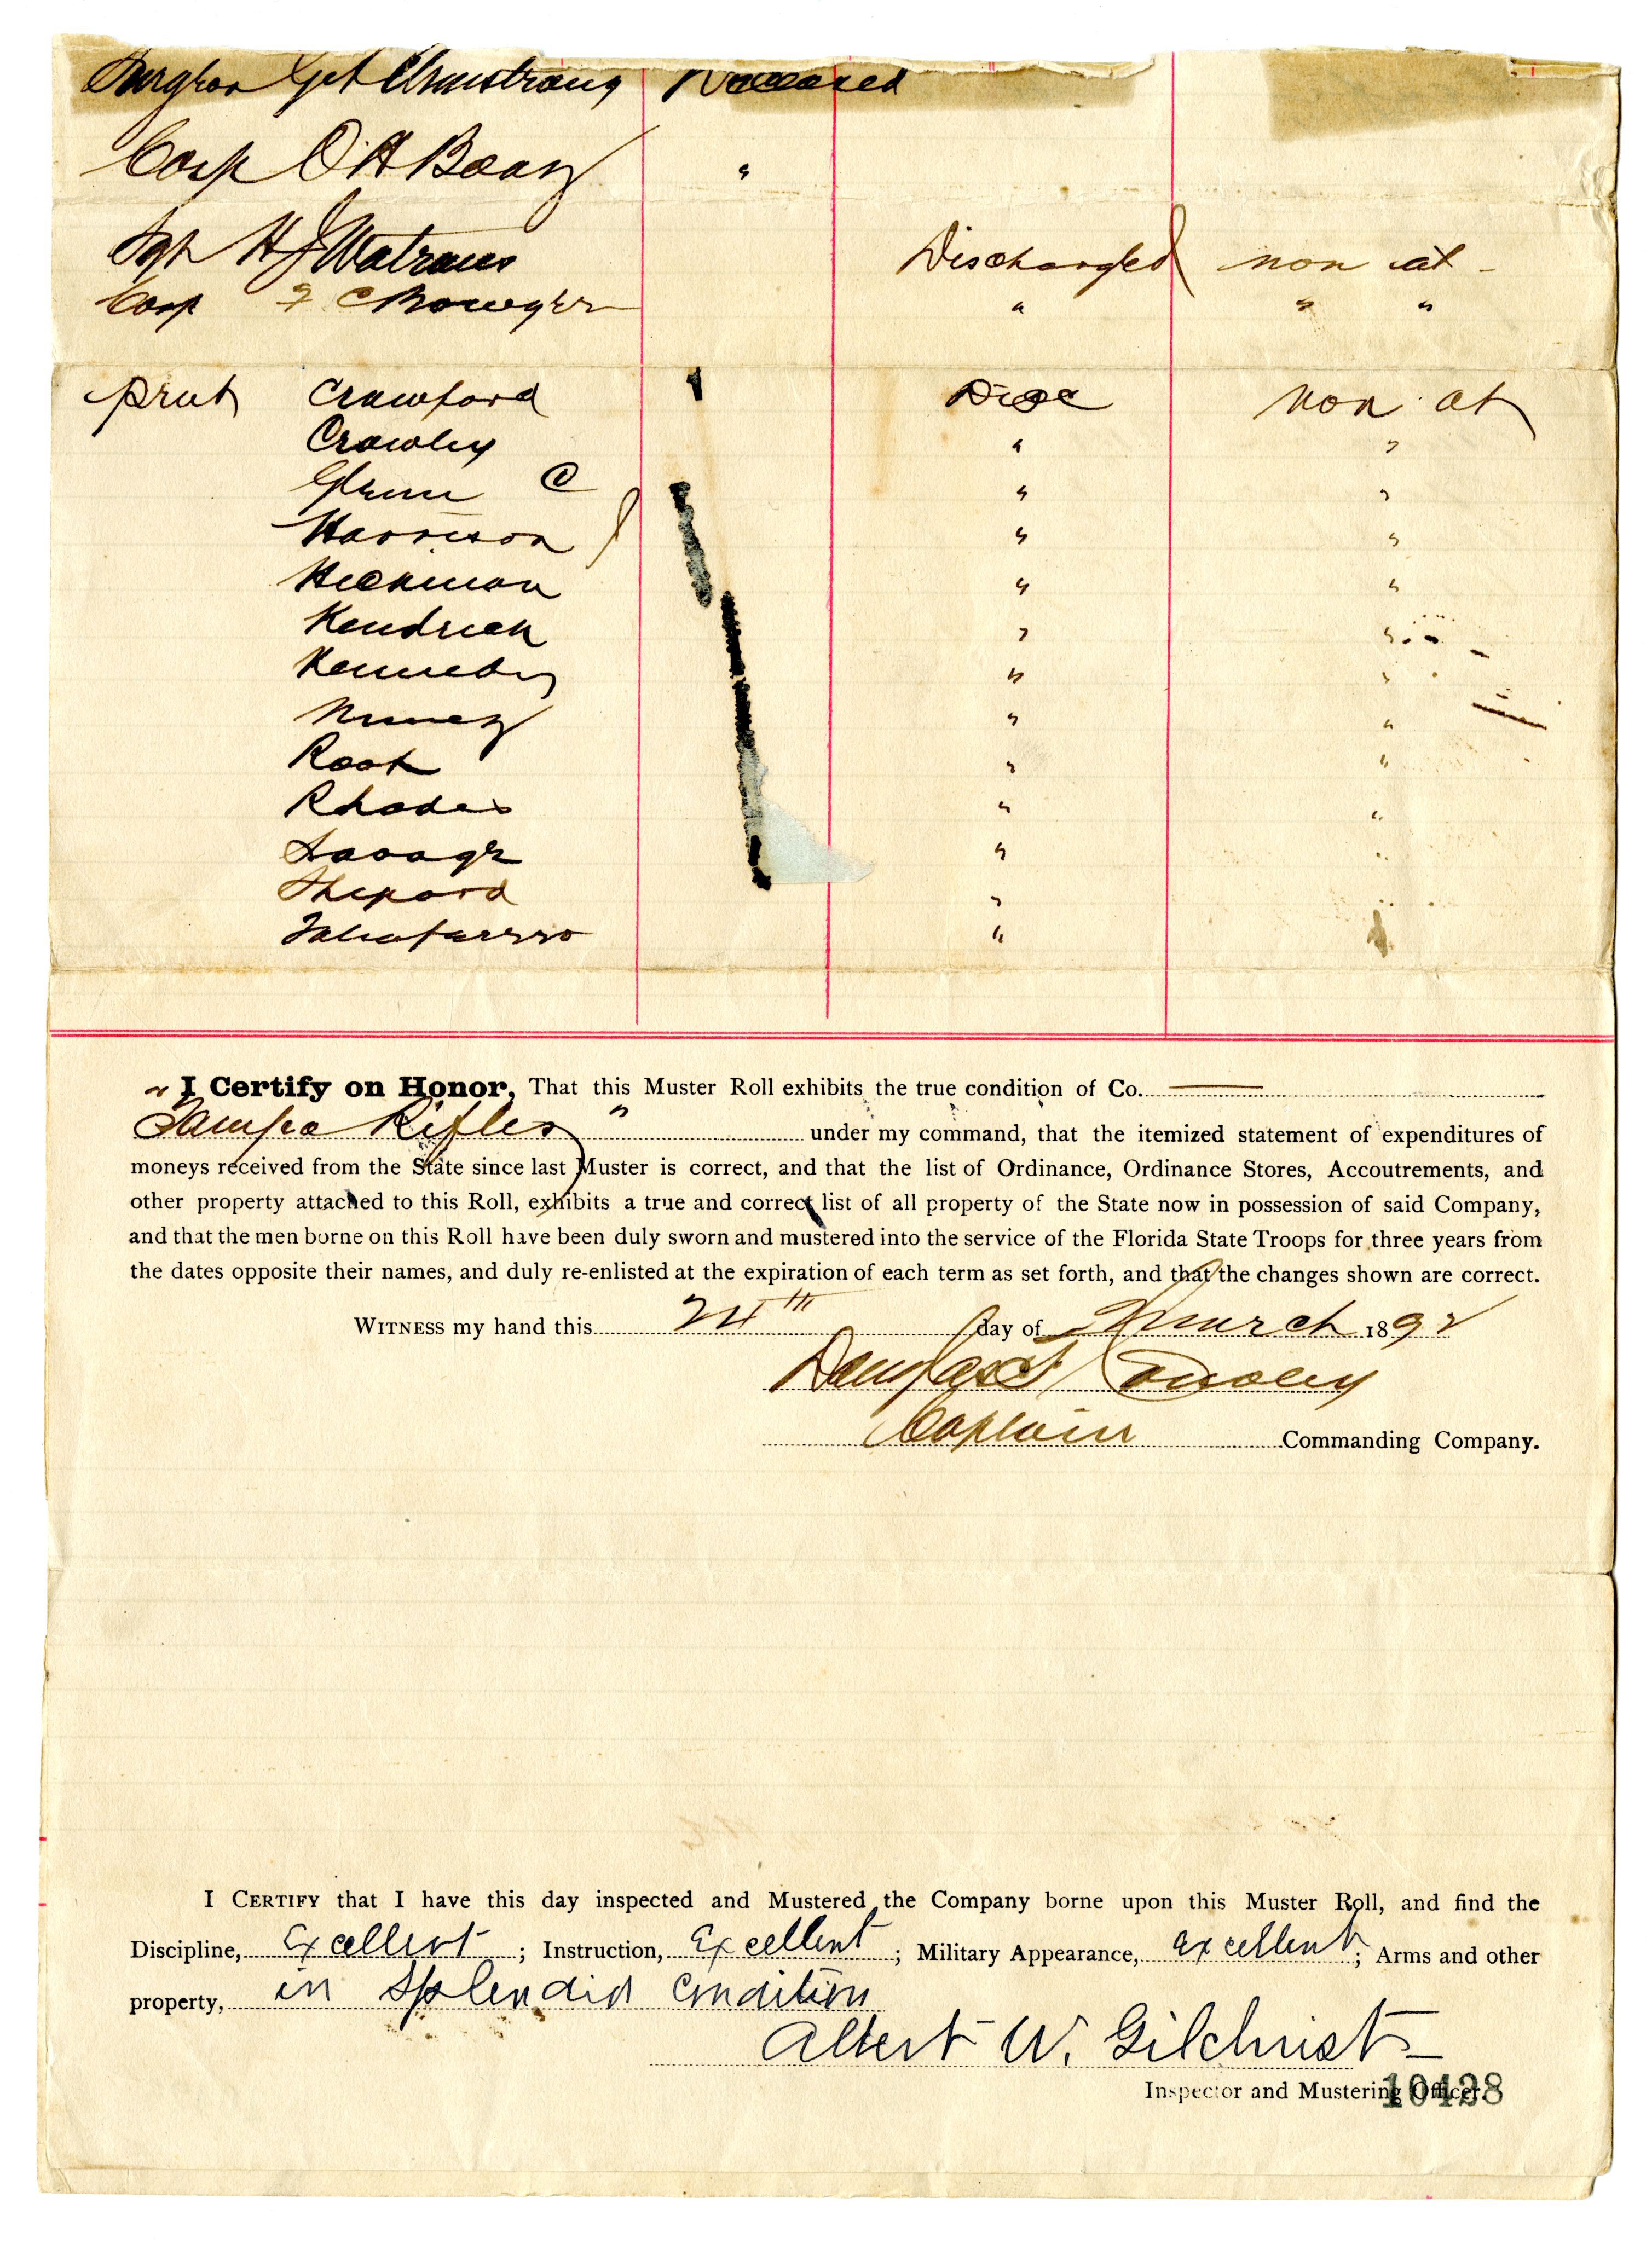 Surgeon Armstrong Deceased
Corp O A Bean "
Sgt H J Watrous Discharged non at -
Corp F C Bowyer " " "
privt Crawford Disc non at
Crowley " "
Glenn C " "
Harrison " "
Hickman " "
Kendrick " "
Kennedy " "
Nunez " "
Root " "
Rhodes " "
Savage " "
Shepard "
Taliaferro "
" I Certify on Honor, That this Muster Roll exhibits the true condition of Co.
Tampa Rifles " under my command, that the itemized statement of expenditures of
moneys received from the State since last Muster is correct, and that the list of Ordinance, Ordinance Stores, Accoutrements, and
other property attached to this Roll, exhibits a true and correct list of all property of the State now in possession of said Company,
and that the men borne on this Roll have been duly sworn and mustered into the service of the Florida State Troops for three years from
the dates opposite their names, and duly re-enlisted at the expiration of each term as set forth, and that the changes shown are correct.
WITNESS my hand this 24th day of March 1892
Conoley
Captain Commanding Company.
I CERTIFY that I have this day inspected and Mustered the Company borne upon this Muster Roll, and find the
Discipline, Excellent ; Instruction, Excellent ; Military Appearance, excellent ; Arms and other
property, in splendid condition
Albert W. Gilchrist
Inspector and Mustering Officer.
10428